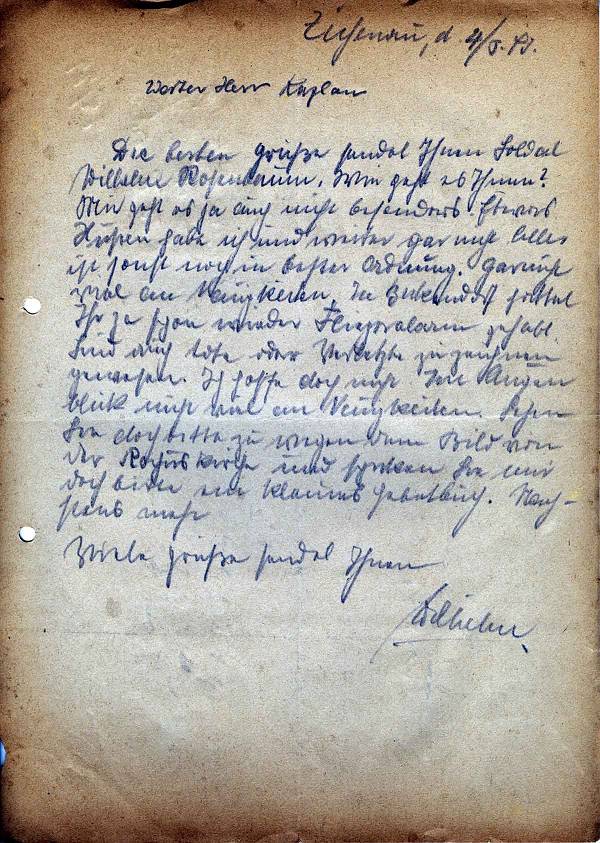 Zichenau, d. 4/5. 41.
Werter Herr Kaplan
Die besten Grüße sendet Ihnen Soldat
Wilhelm Rosenbaum. Wie geht es Ihnen?
Mir geht es ja auch nicht besonders. Etwas
Husten habe ich und weiter gar nicht. Alles
ist sonst noch in bester Ordnung. Gar nicht
viel an Neuigkeiten. In hattet
Ihr ja schon wieder Fliegeralarm gehabt.
Sind auch tote oder Verletzte zu zeichnen
gewesen. Ich hoffe doch nicht. Im Augen
blick nicht viel an Neuigkeiten. Sehen
Sie doch bitte zu wegen dem Bild von
der Rochuskirche und schicken Sie mir
doch bitte ein kleines Gebetbuch. Näch-
stens mehr
Viele Grüße sendet Ihnen
Wilhelm